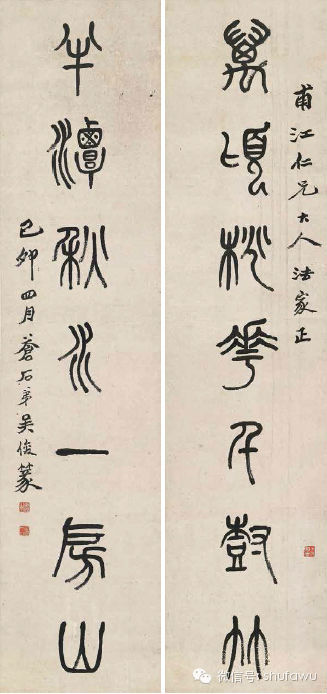 甫江仁兄大人法家正
萬頃桃華千尌竹
半潭秋水一房山
己卯四月蒼石弟吳俊篆
微信号: shufawu